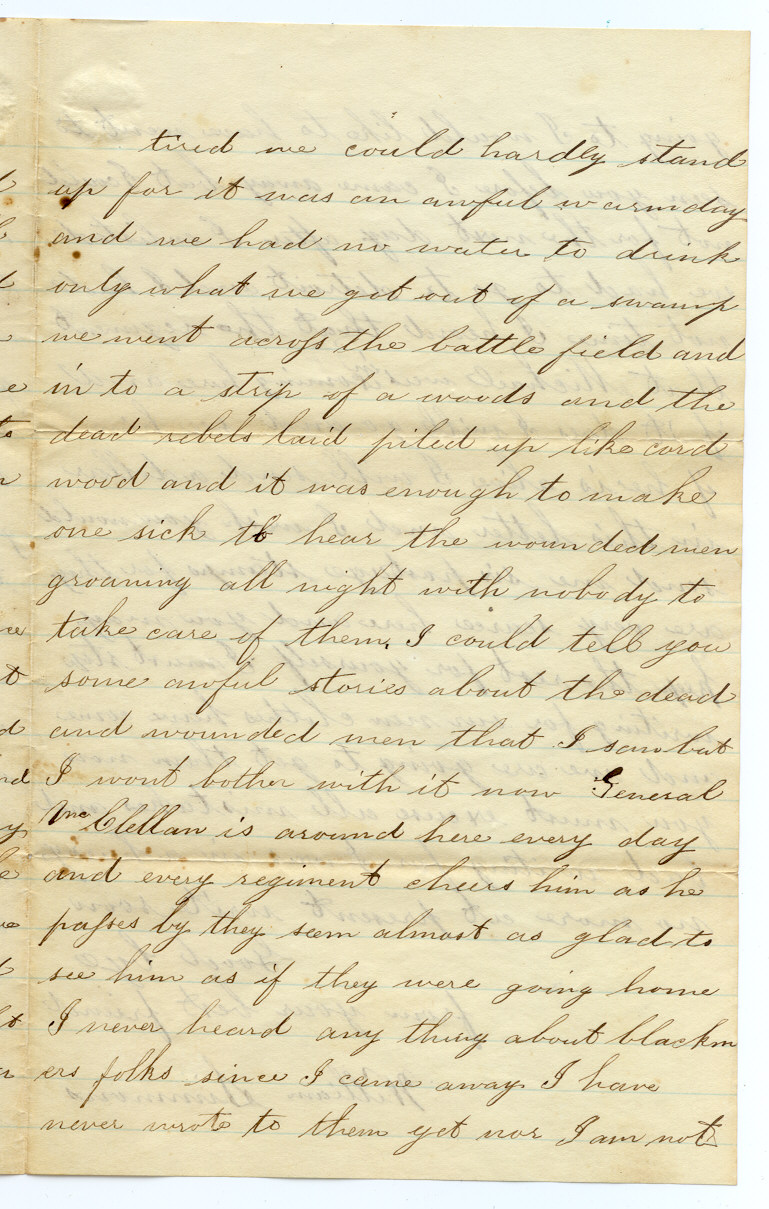 tired we could hardly stand
up for it was an awful warm day
and we had no water to drink
only what we got out of a swamp
we went across the battle field and
in to a strip of a woods and the
dead rebels laid piled up like cord
wood and it was enough to make
one sick to hear the wounded men
groaning all night with nobody to
take care of them. I could tell you
some awful stories about the dead
and wounded men that I saw but
I wont bother with it now General
McClellan is around here every day
and every regiment cheers him as he
passes by they seem almost as glad to
see him as if they were going home
I never heard any thing about blackm
ers folks since I came away I have
never wrote to them yet nor I am not